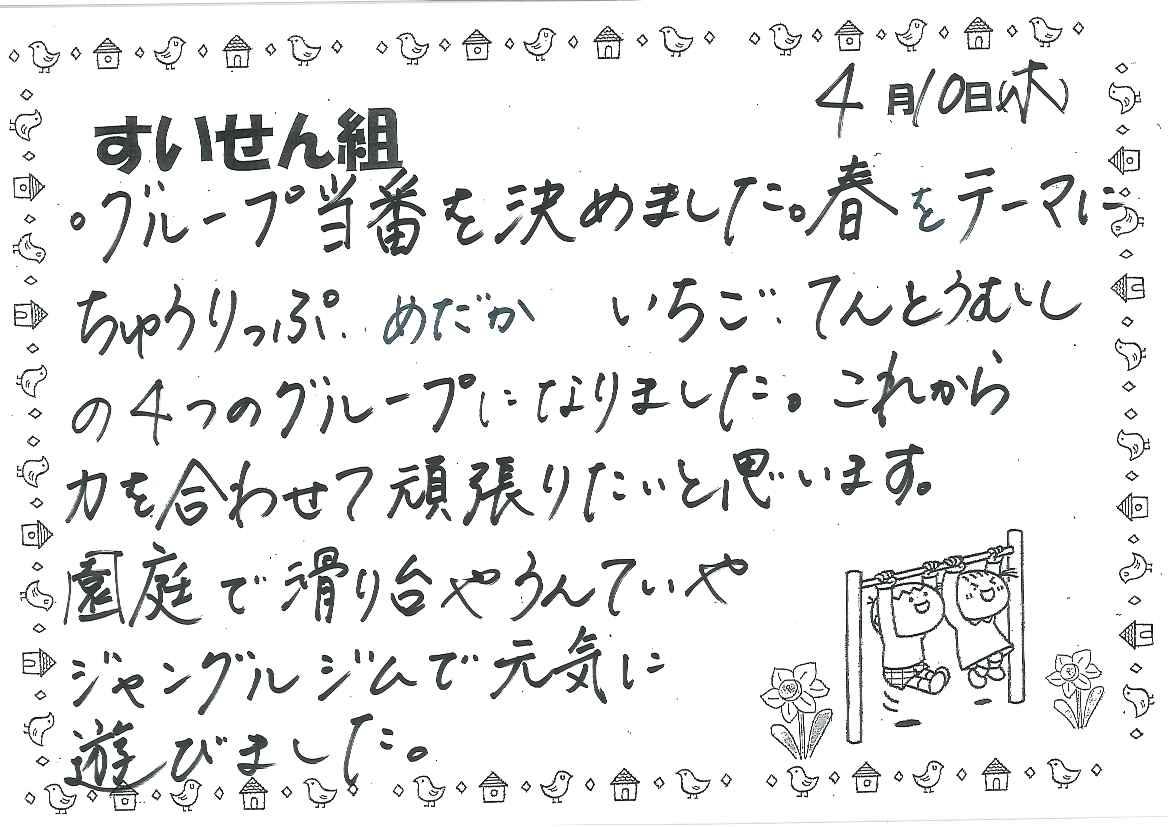 4月10日(木)
すいせん組
。グループ当番を決めました。春をテーマに
ちゅうりっぷ、めだか　いちご、てんとうむし
の4つのグループになりました。これから
力を合わせて頑張りたいと思います。
園庭で滑り台やうんていや
ジャングルジムで元気に
遊びました。